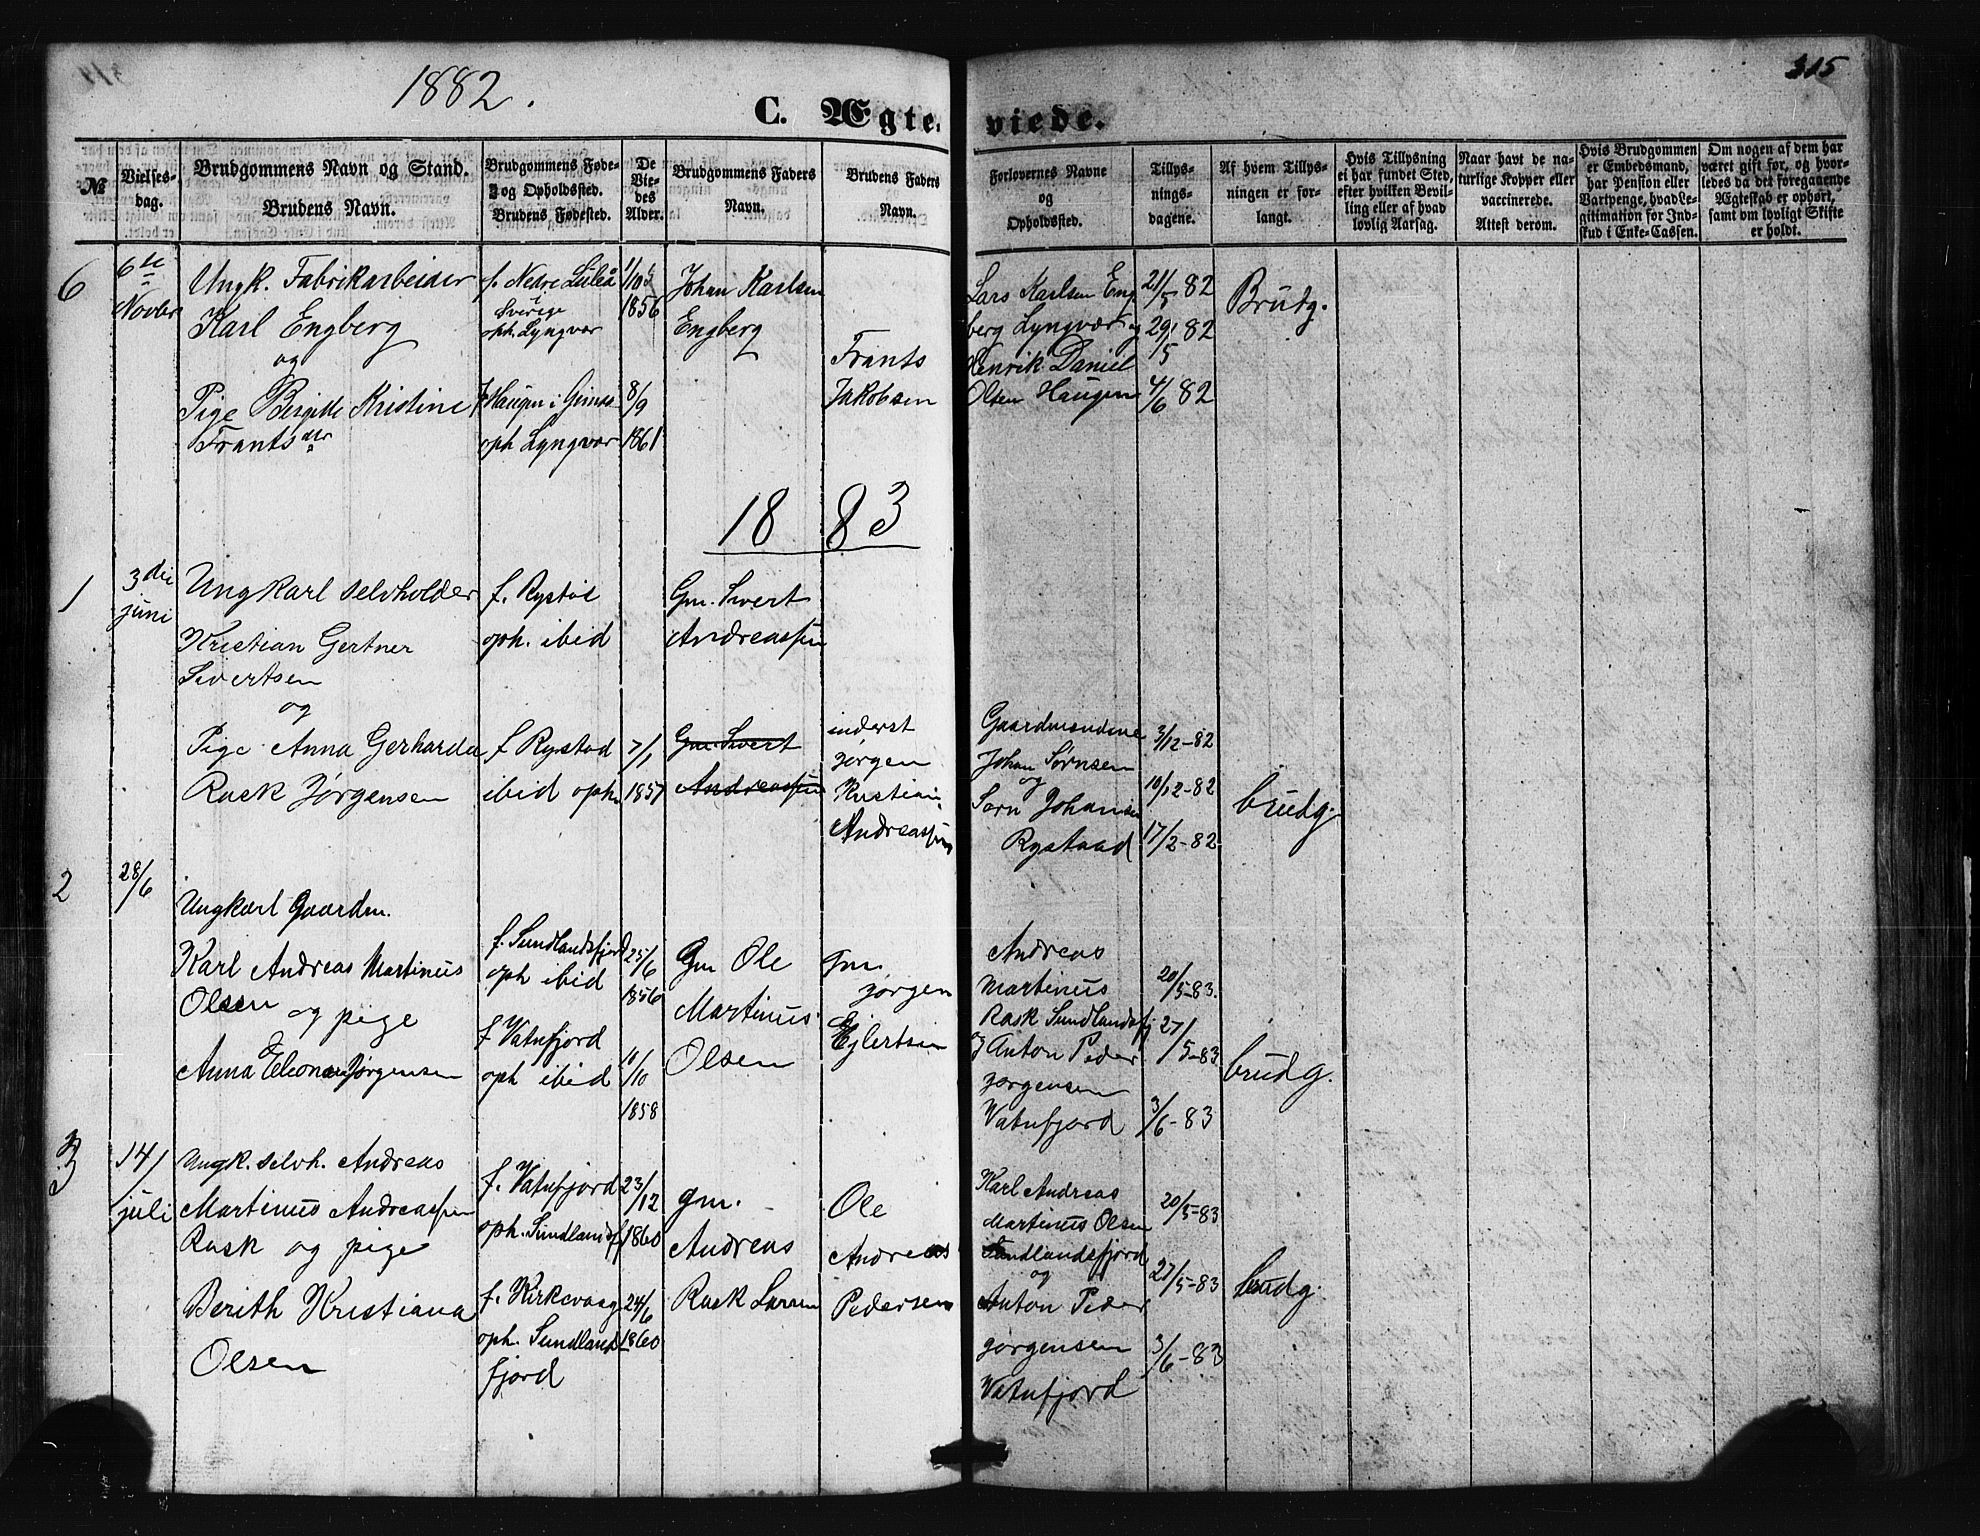 1882.
315
C. Ægteviede.
№
Vielses-
dag.
Brudgommens Navn og Stand.
Brudens Navn.
Brudgommens Føde-
og Opholdssted.
Brudens Fødested.
De
Vie-
des
Alder.
Brudgommens Faders
Navn.
Brudens Faders
Navn.
Forlovernes Navne
og
Opholdssted.
Tillys-
nings-
dagene.
Af hvem Tillys-
ningen er for-
langt.
Hvis Tillysning
ei har fundet Sted,
efter hvilken Bevil-
ling eller af hvad
lovlig Aarsag.
Naar havt de na-
turlige Kopper eller
vaccinerede.
Attest derom.
Hvis Brudgommen
er Embedsmand,
har Pension eller
Vartpenge, hvad Le-
gitimation for Ind-
skud i Enke-Cassen.
Om nogen af dem har
været gift før, og hvor-
ledes da det foregaaende
Ægteskab er ophørt,
samt om lovligt Skifte
er holdt.
6
6te
Novbr
Ungk. Fabrikarbeider
Karl Engberg
og
Pige Bergitte Kristine
Frantsdtr
f. Nedre Luleå
i
Sverige
oph. Lyngvær
f Haugen i Gimsø
oph Lyngvær
1856
8/9
1861
Johan Karlsen
Engberg
Frants
Jakobsen
Lars Karlsen Eng
berg Lyngvær og
Henrik Daniel
Olsen Haugen
21/5 82
29/5 82
4/6 82
Brudg.
1883
1
3die
juni
Ungkarl selvholder
Kristian Gertner
Sivertsen
og
Pige Anna Gerharda
Rask Jørgensen
f. Rystad
oph. ibid
f Rystad
ibid oph.
7/1
1857
Gm. Sivert
Andreassen
Gm. Sivert
Andreassen
inderst
Jørgen
Kristian
Andreassen
Gaardmændene
Johan Sørnsen
og
Sørn Johansen
Rystaad
3/12-82
10/12-82
17/2-82
brudg.
2
28/6
Ungkarl Gaardm.
Karl Andreas Martinus
Olsen og pige
Anna Eleonora Jørgensen
f. Sundlandsfjord
oph ibid
f Vatnfjord
oph ibid
25/6
1856
10/10
1858
Gm Ole
Martinus
Olsen
Gm.
Jørgen
Ejlertsen
Andreas
Martinus
Rask Sundlandsfj
og Anton Peder
Jørgensen
Vatnfjord
20/5-83.
27/5-83
3/6-83
brudg.
3
14/
juli
Ungk. selvh. Andreas
Martinus Andreassen
Rask og pige
Berith Kristiana
Olsen
f. Vatnfjord
oph. Sundlandsf
f. Kirkevaag
oph. Sundlands
fjord
23/12
1860
24/6
1860
gm.
Andreas
Rask Larsen
Ole
Andreas
Pedersen
Karl Andreas
Martinus Olsen
Sundlandsfjord
og
Anton Peder
Jørgensen
Vatnfjord
20/5-83
27/5-83
3/6-83
brudg.